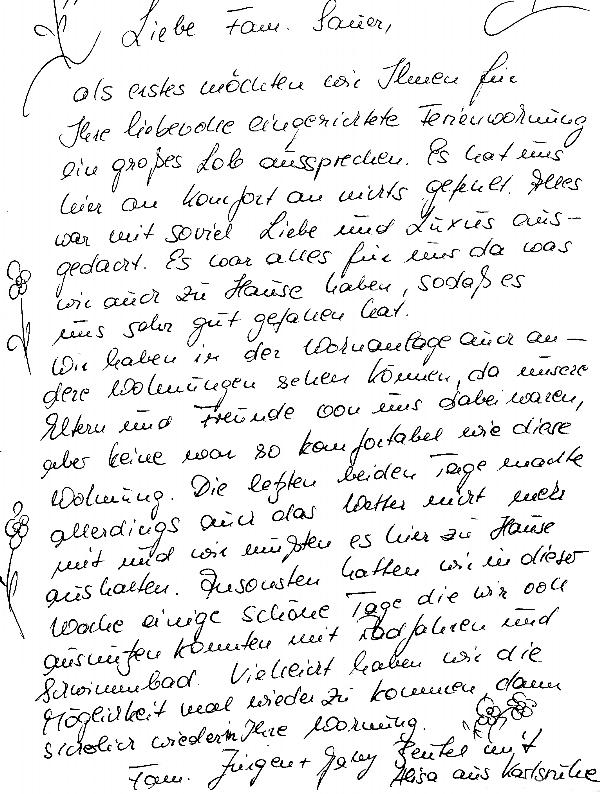 Liebe Fam. Sauer,
als erstes möchten wir Ihnen für
Ihre liebevolle eingerichtete Ferienwohnung
ein großes Lob aussprechen. Es hat uns
hier an Komfort an nichts gefehlt. Alles
war mit soviel Liebe und Luxus aus-
gedacht. Es war alles für uns da was
wir auch zu Hause haben, sodaß es
uns sehr gut gefallen hat.
Wir haben in der Wohnanlage auch an-
dere Wohnungen sehen können, da unsere
Eltern und Freunde von uns dabei waren,
aber keine war so komfortabel wie diese
Wohnung. Die letzten beiden Tage machte
allerdings auch das Wetter nicht mehr
mit und wir mußten es hier zu Hause
aushalten. Ansonsten hatten wir in dieser
Woche einige schöne Tage die wir voll
ausnutzen konnten mit Radfahren und
Schwimmbad. Vielleicht haben wir die
Möglichkeit mal wieder zu kommen, dann
sicherlich wieder in Ihre Wohnung.
Fam. Jürgen + Gaby Beutel mit
aus Karlsruhe